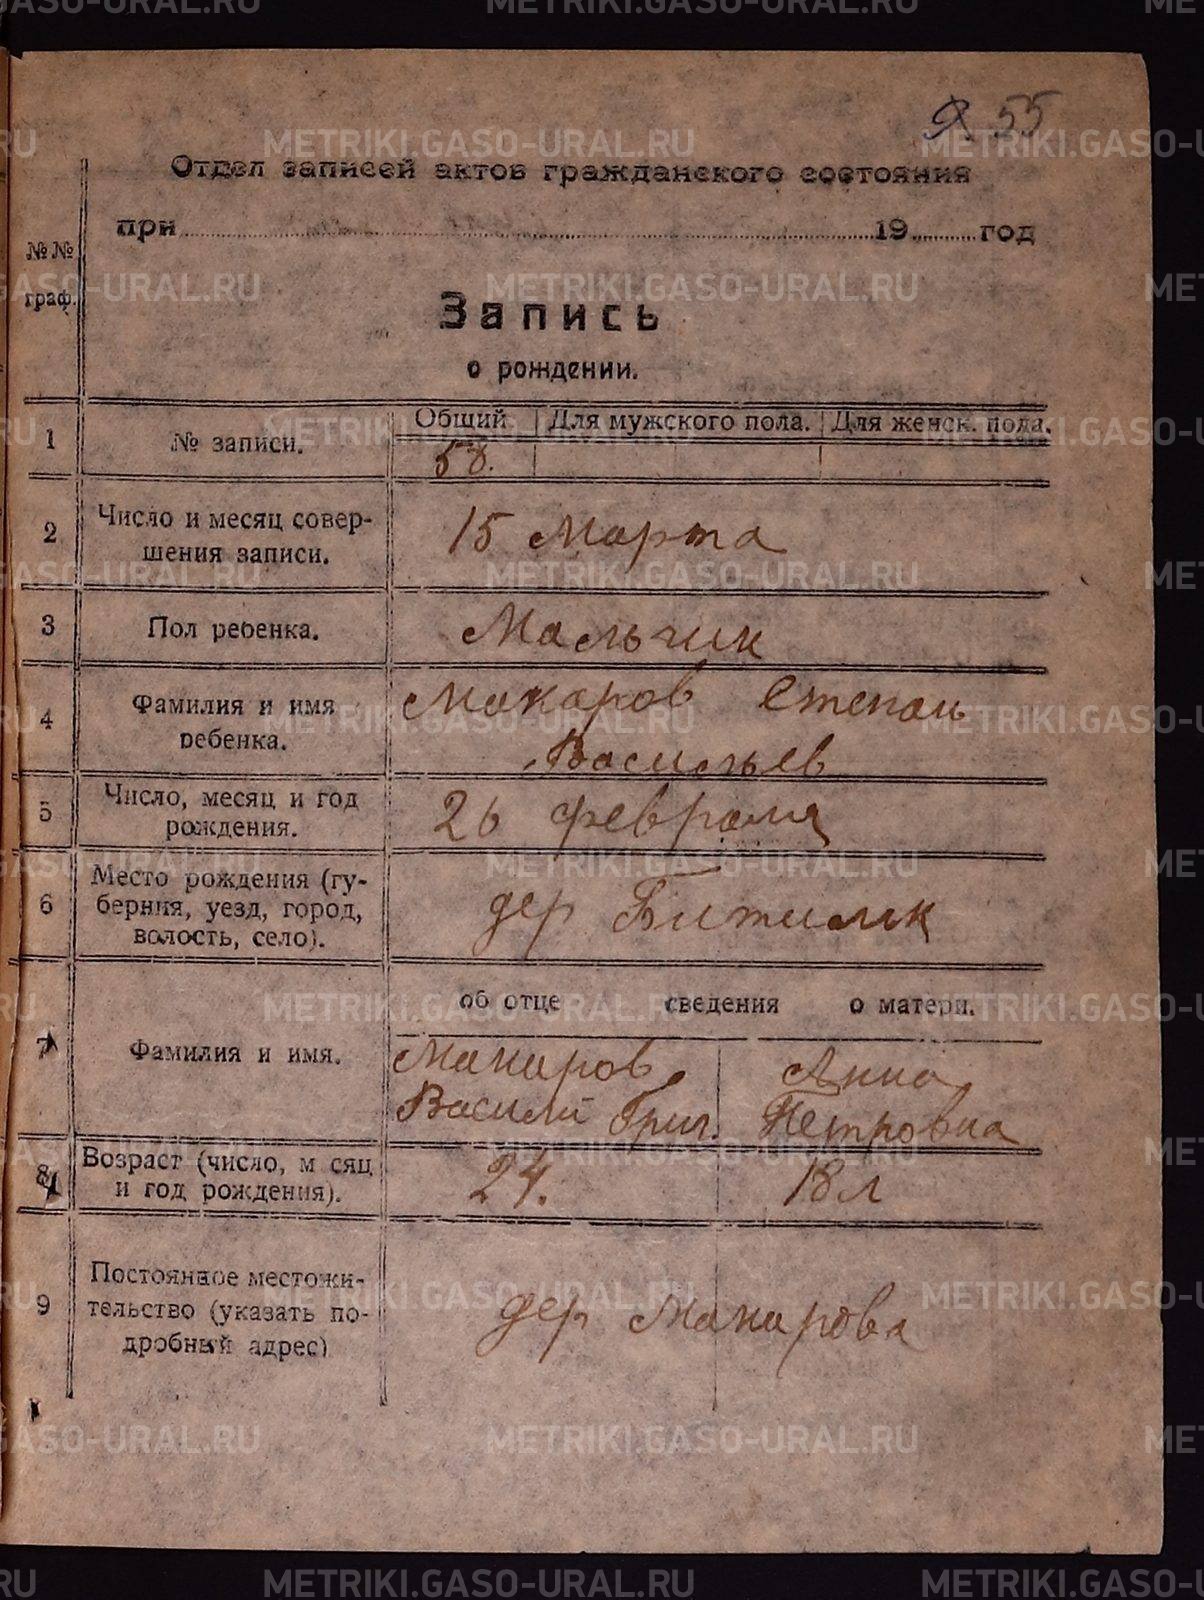 55
Отдел записей актов гражданского состояния
при 19 год
№№ граф.
Запись
о рождении.
Общий Для мужского пола. Для женск. пола.
1 № записи. 58.
2 Число и месяц совер-
шения записи. 15 Марта
3 Пол ребенка. Мальчик
4 Фамилия и имя Макаров Степан
ребенка. Васильев
5 Число, месяц и год
рождения. 26 февраля
Место рождения (гу-
6 берния, уезд, город, дер
волость, село).
об отце сведения о матери.
7 Фамилия и имя. Макаров Анна
Василий Григ. Петровна
8 Возраст (число, м сяц
и год рождения). 24. 18 л
Постоянное местожи-
9 тельство (указать по- дер Макарова
дробный адрес)
METRIKI.GASO-URAL.RU